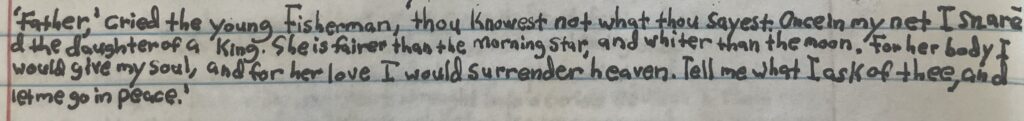 'Father,' cried the young Fisherman, 'thou Knowest not what thou sayest. Once in my net I snare
d the daughter of a King. She is fairer than the morning star, and whiter than the moon. For her body I
would give my soul, and for her love I would surrender heaven. Tell me what I ask of thee, and
let me go in peace.'